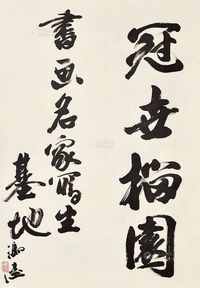 冠世榴園
書画名家寫生
基地